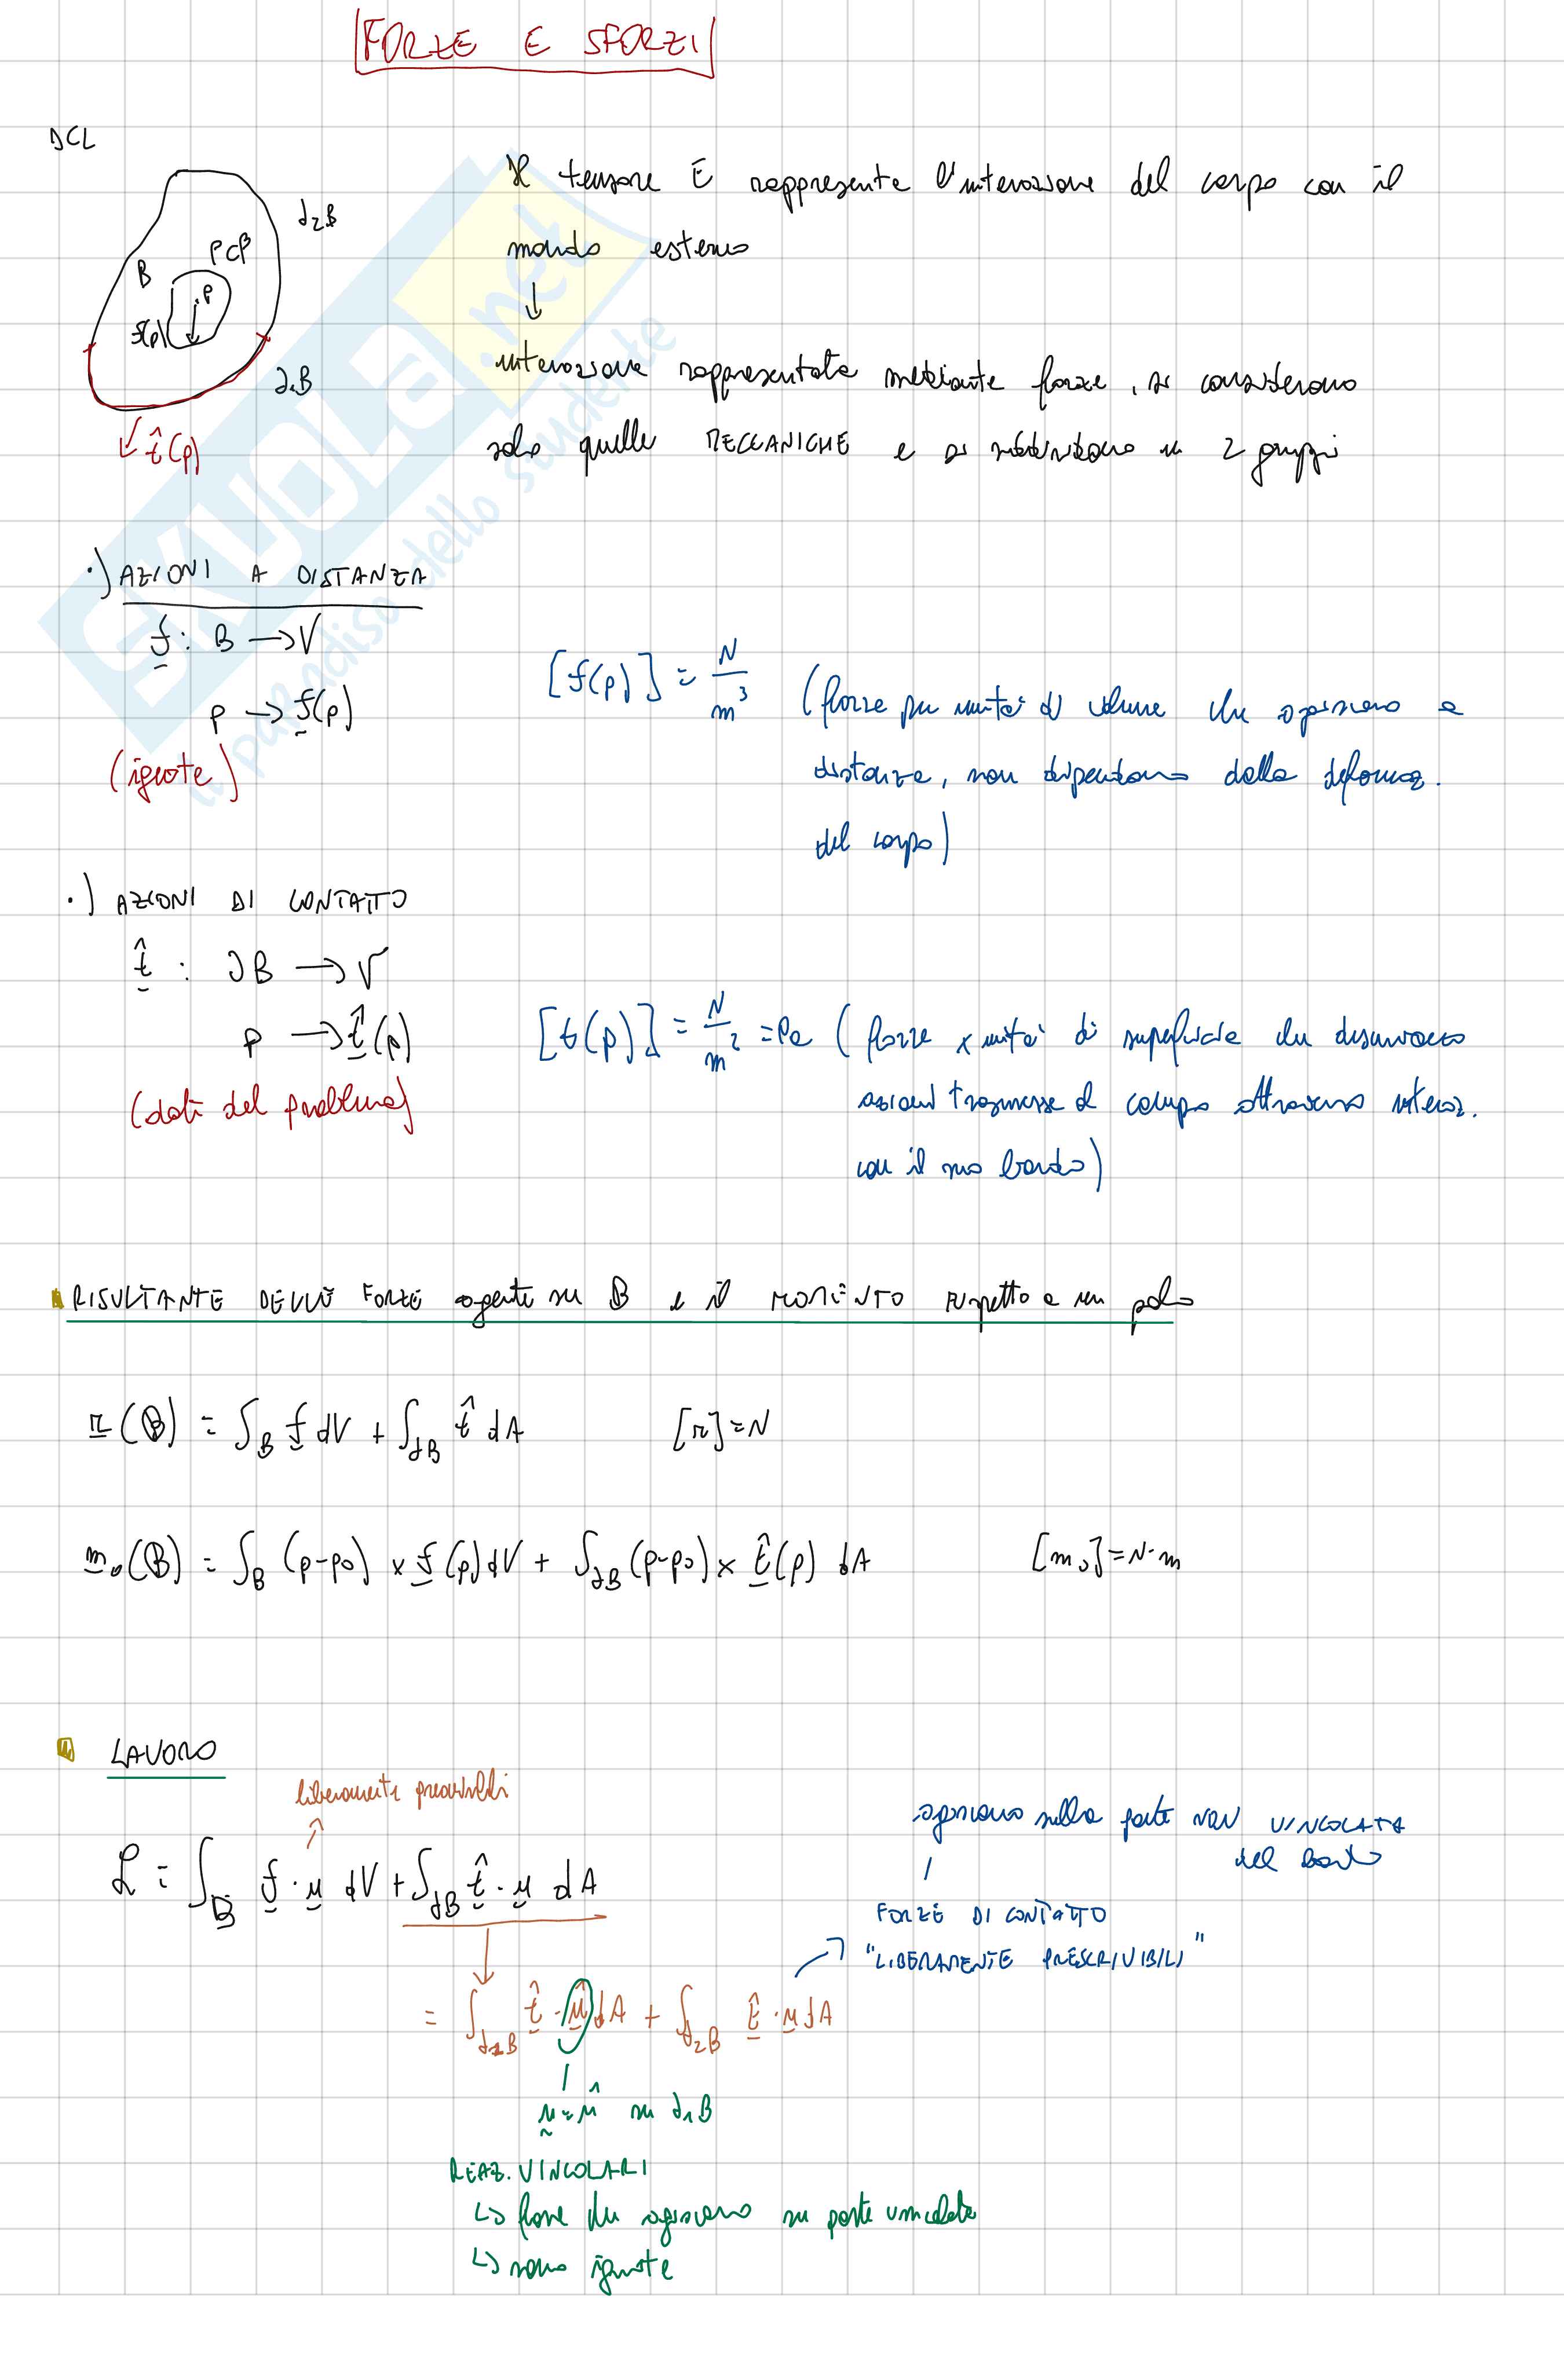 FORZE E SFORZI
DCL
Il tensore E rappresenta l'interazione del corpo con il
mondo esterno
↓
interazione rappresentata mediante forze, si considerano
solo quelle MECCANICHE e si suddividono in 2 gruppi
∂₂B
P⊂B
B
p
f(p)
∂₁B
t̂(p)
·) AZIONI A DISTANZA
f: B → V
p → f(p)
(ignote)
[f(p)] = N/m³ (forze per unità di volume che agiscono a
distanza, non dipendono dalla deformaz.
del corpo)
·) AZIONI DI CONTATTO
t̂ : ∂B → V
p → t̂(p)
(dati del problema)
[t(p)] = N/m² = Pa (forze x unità di superficie che descrivono
azioni trasmesse al corpo attraverso interaz.
con il suo bordo)
RISULTANTE DELLE FORZE agente su B e il MOMENTO rispetto a un polo
r(B) = ∫_B f dV + ∫_∂B t̂ dA [r] = N
m₀(B) = ∫_B (p-p₀) × f(p) dV + ∫_∂B (p-p₀) × t̂(p) dA [m₀] = N·m
LAVORO
liberamente prescrivibili
agiscono sulla parte NON VINCOLATA
del bordo
L = ∫_B f · u dV + ∫_∂B t̂ · u dA
FORZE DI CONTATTO
"LIBERAMENTE PRESCRIVIBILI"
= ∫_∂₁B t̂ · û dA + ∫_∂₂B t̂ · u dA
u = û su ∂₁B
REAZ. VINCOLARI
↳ forze che agiscono su parte vincolata
↳ sono ignote
SKUOLA.net
il paradiso dello studente